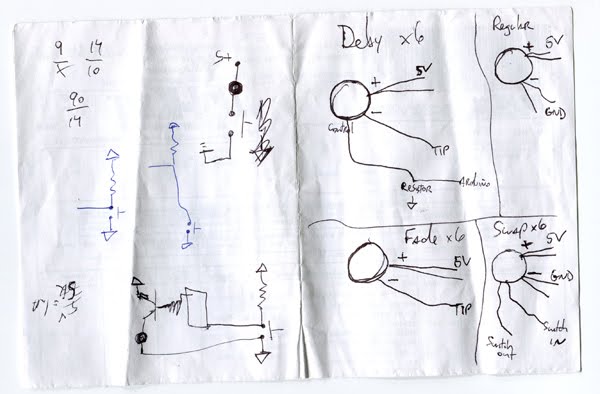 9 14
x 10
90
14
5+
Delay x6
+
5V
-
Control
TIP
Resistor
Arduino
Regular
+
5V
-
GND
Fade x6
+
5V
-
TIP
Swap x6
+
5V
-
GND
Switch
IN
Switch
out